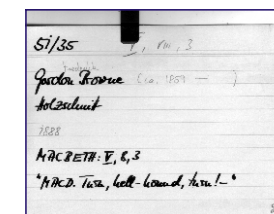 5i/35 V, VIII, 3
Gordon Browne (ca. 1859 — )
Holzschnitt
1888
MACBETH: V, 8, 3
"MACD. Turn, hell-hound, turn!—"